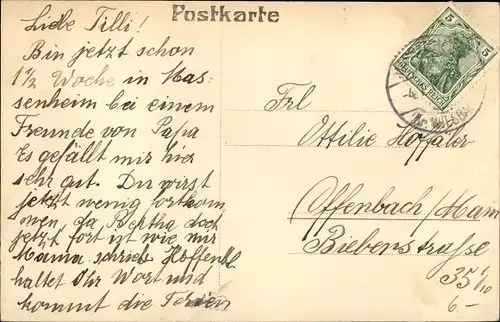 Postkarte
Liebe Tilli!
Bin jetzt schon
1 1/2 Woche in Mas-
senheim bei einem
Freunde von Papa
Es gefällt mir hier
sehr gut. Du wirst
jetzt wenig fortkom
men, da Bertha doch
jetzt fort ist wie mir
Mama schrieb. Hoffentl.
haltet Ihr Wort und
kommt die Ferien
5 5
Deutsches Reich
Frl
Ottilie
Offenbach/Main
Bieberstraße
35
6.-